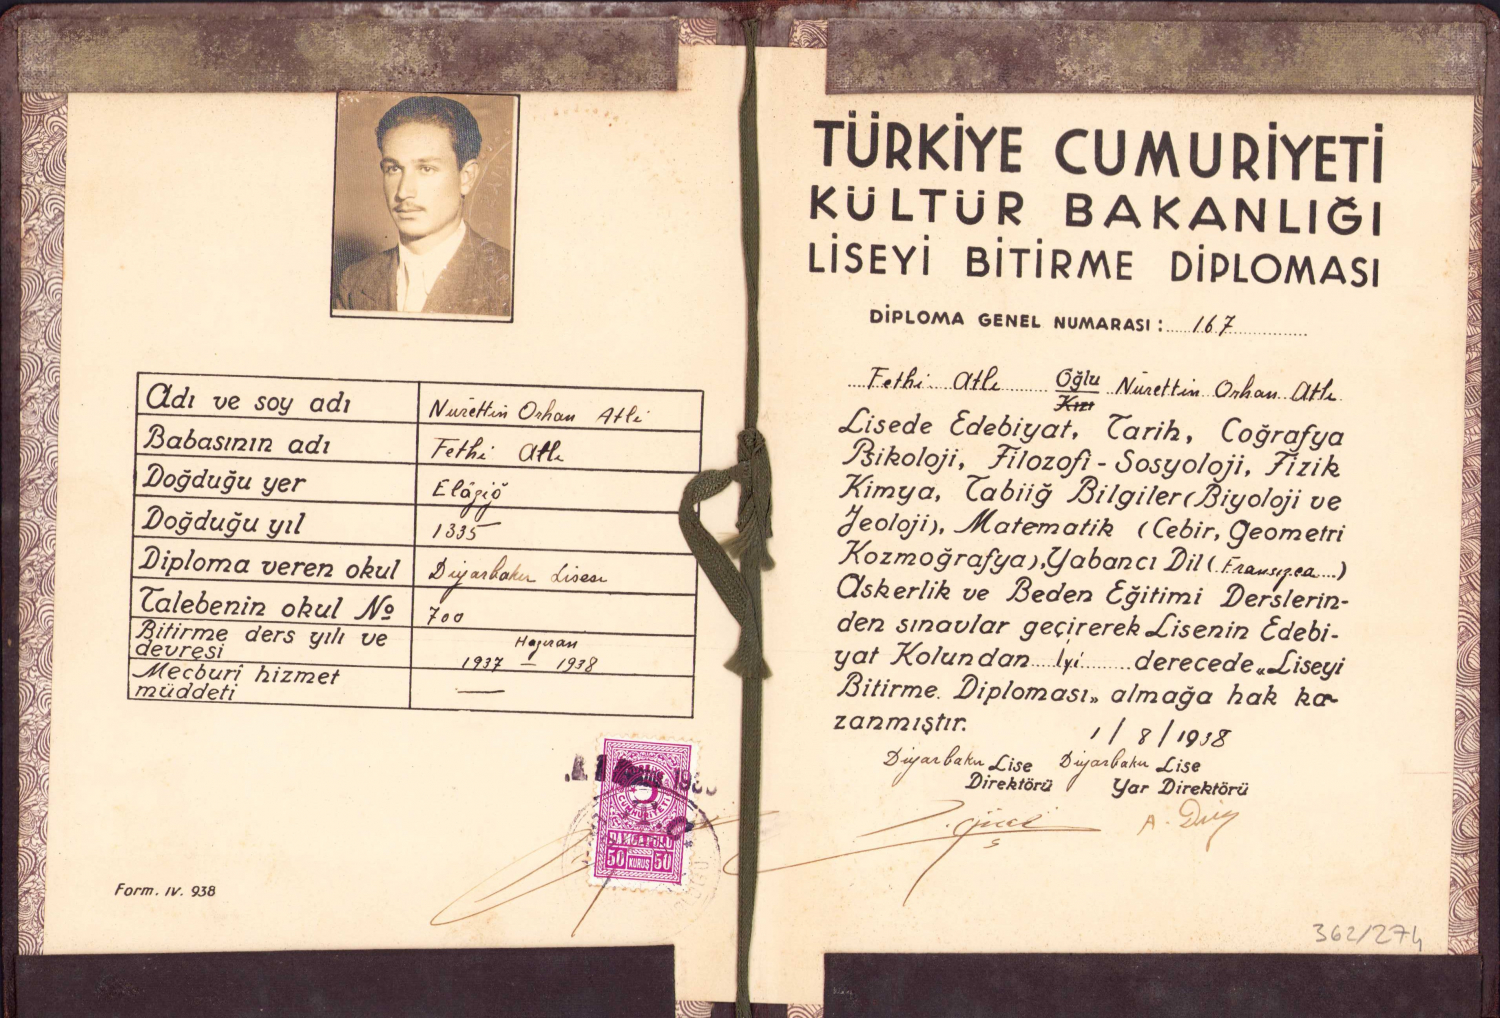 Adı ve soy adı Nurettin Orhan Atlı
Babasının adı Fethi Atlı
Doğduğu yer Elâziğ
Doğduğu yıl 1335
Diploma veren okul Diyarbakır Lisesi
Talebenin okul No 700
Bitirme ders yılı ve devresi Haziran 1937 — 1938
Mecburî hizmet müddeti —
1938
DAMGA PULU
50 KURUŞ 50
Form. IV. 938
TÜRKİYE CUMURİYETİ
KÜLTÜR BAKANLIĞI
LİSEYİ BİTİRME DİPLOMASI
DİPLOMA GENEL NUMARASI : 167
Fethi Atlı Oğlu Kızı Nurettin Orhan Atlı
Lisede Edebiyat, Tarih, Coğrafya
Psikoloji, Filozofi - Sosyoloji, Fizik
Kimya, Tabiiğ Bilgiler (Biyoloji ve
Jeoloji), Matematik (Cebir, Geometri
Kozmoğrafya), Yabancı Dil (Fransızca)
Askerlik ve Beden Eğitimi Derslerin-
den sınavlar geçirerek Lisenin Edebi-
yat Kolundan İyi derecede „Liseyi
Bitirme Diploması„ almağa hak ka-
zanmıştır.
1/8/1938
Diyarbakır Lise Diyarbakır Lise
Direktörü Yar Direktörü
362/274